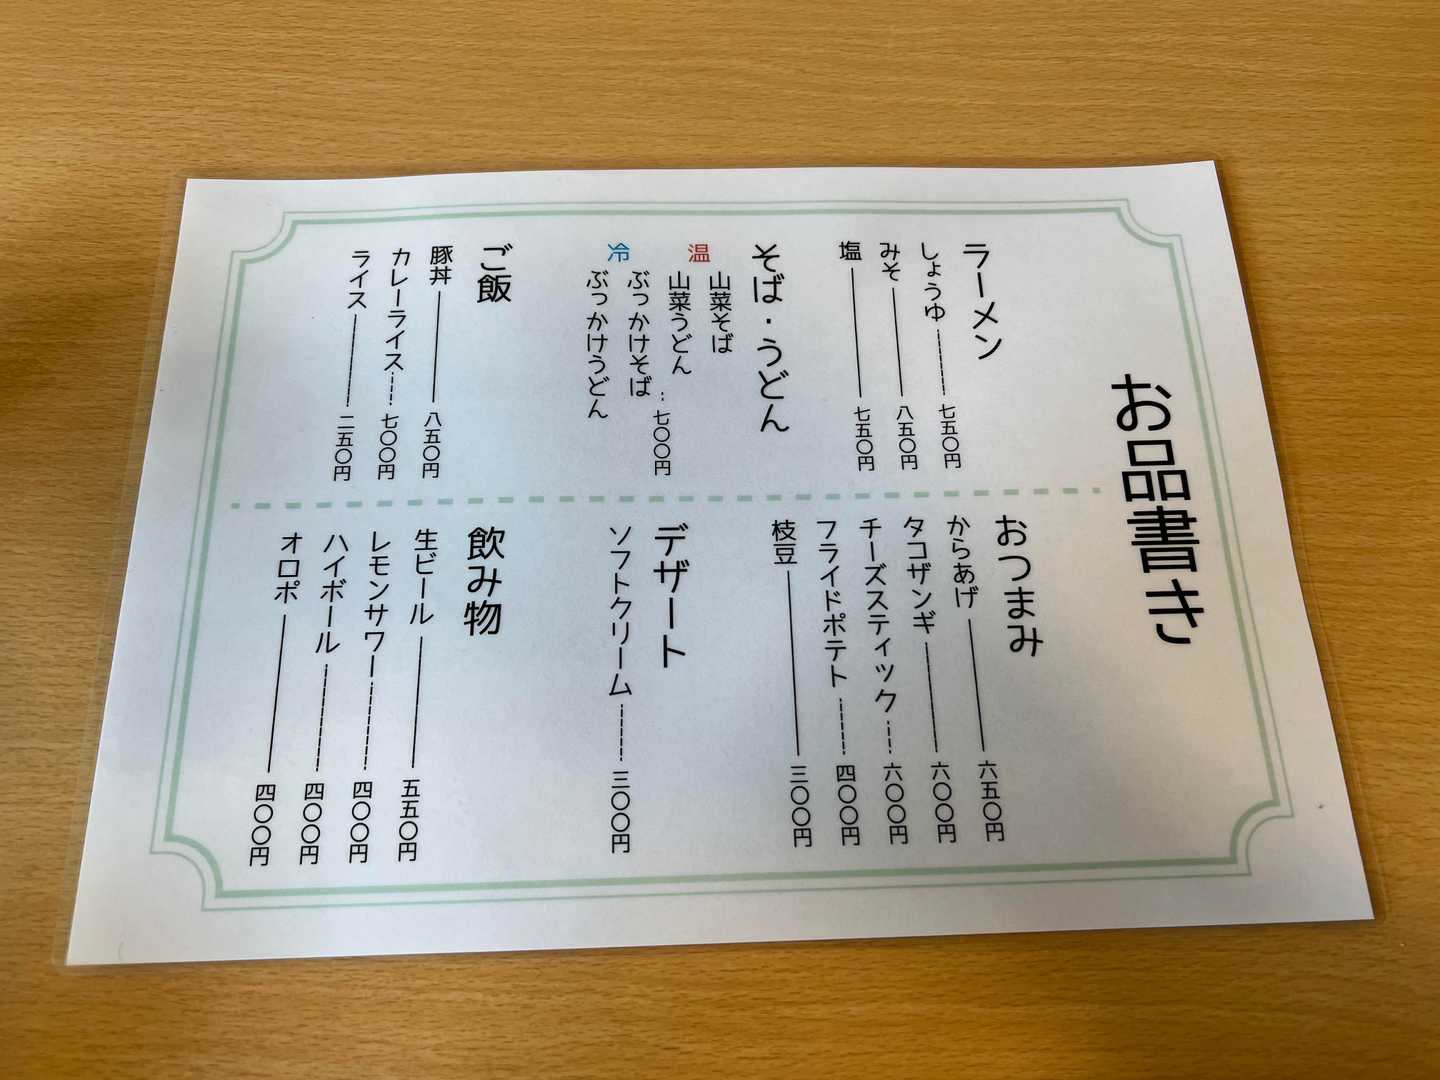 お品書き
ラーメン
しょうゆ 七五〇円
みそ 八五〇円
塩 七五〇円
そば・うどん
温
山菜そば
山菜うどん
冷
ぶっかけそば
ぶっかけうどん
七〇〇円
ご飯
豚丼 八五〇円
カレーライス 七〇〇円
ライス 二五〇円
おつまみ
からあげ 六五〇円
タコザンギ 六〇〇円
チーズスティック 六〇〇円
フライドポテト 四〇〇円
枝豆 三〇〇円
デザート
ソフトクリーム 三〇〇円
飲み物
生ビール 五五〇円
レモンサワー 四〇〇円
ハイボール 四〇〇円
オロポ 四〇〇円